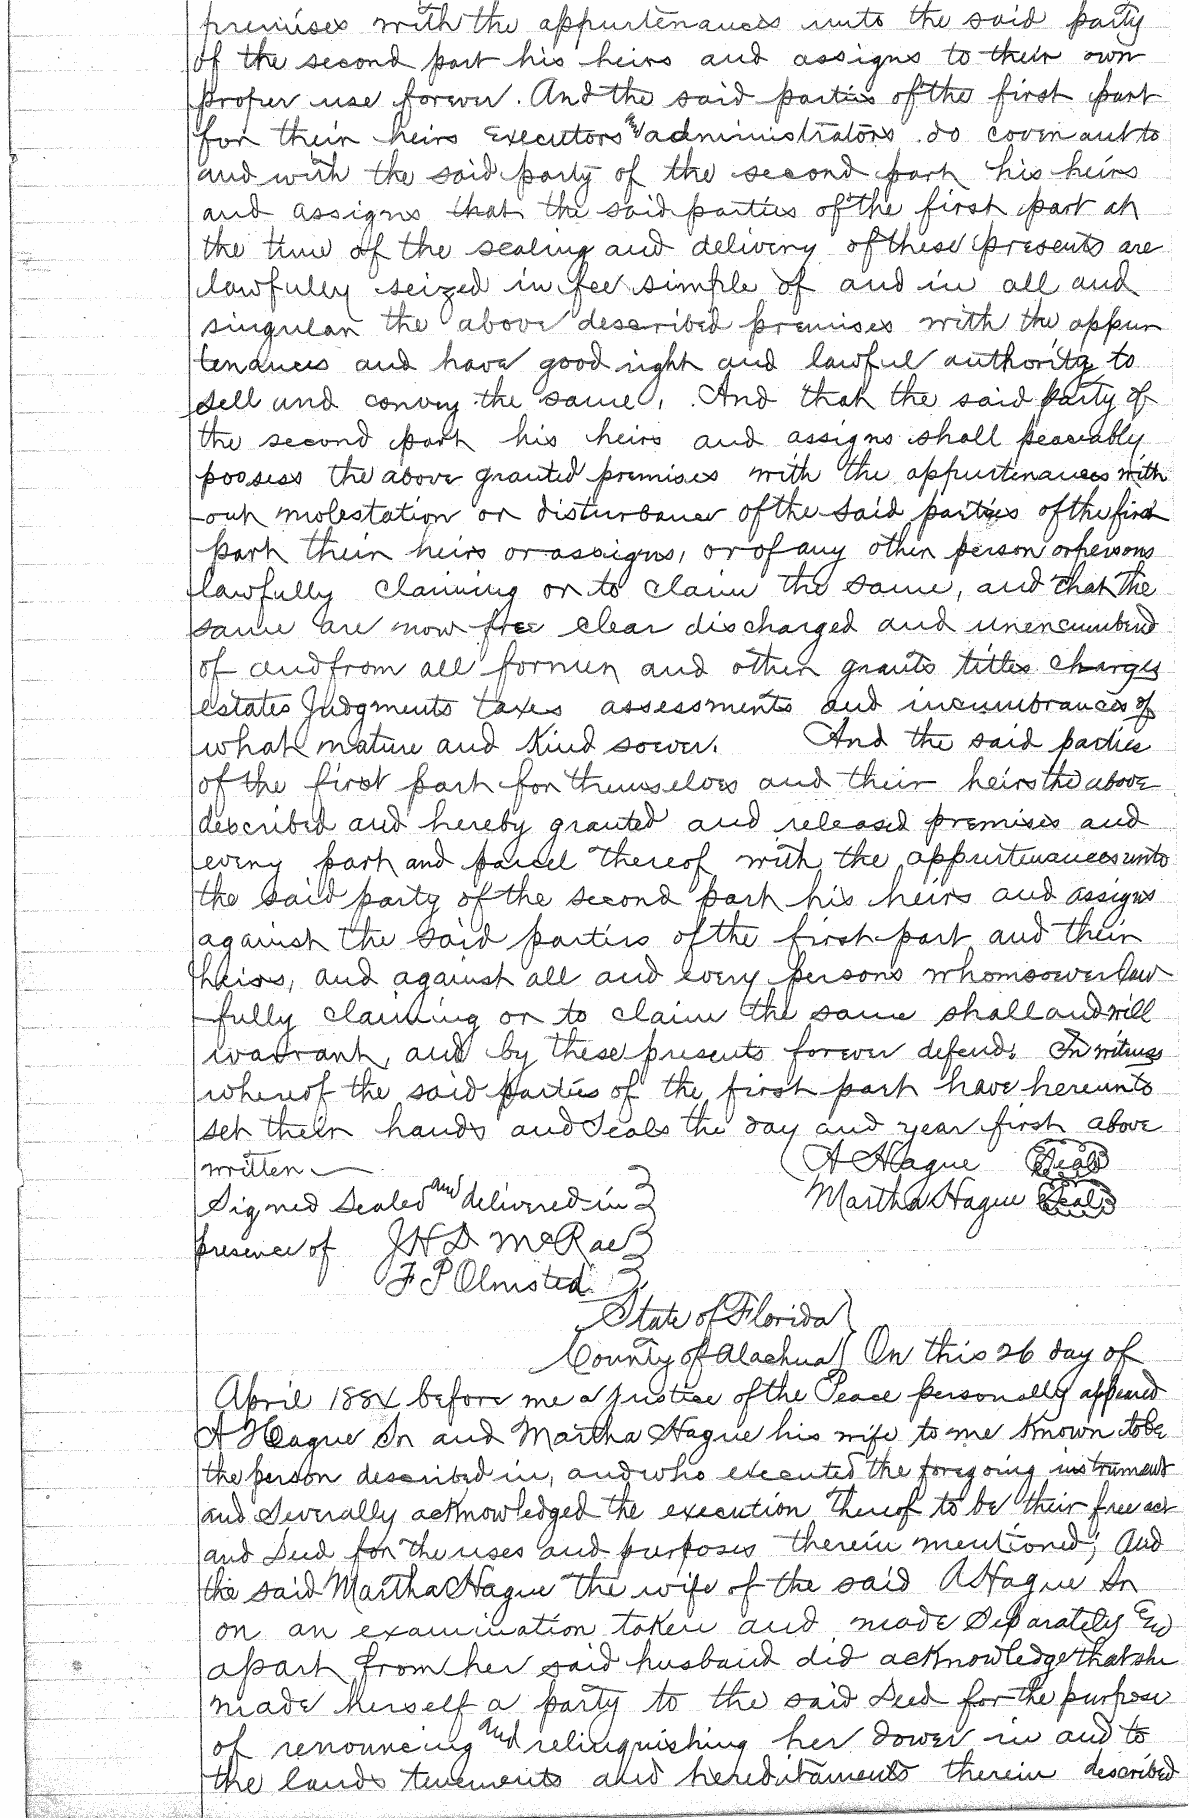 premises with the appurtenances unto the said party
of the second part his heirs and assigns to their own
proper use forever. And the said parties of the first part
for their heirs executors & administrators do covenant to
and with the said party of the second part his heirs
and assigns that the said parties of the first part at
the time of the sealing and delivery of these presents are
lawfully seized in fee simple of and in all and
singular the above described premises with the appur
tenances and have good right and lawful authority to
sell and convey the same, And that the said party of
the second part his heirs and assigns shall peaceably
possess the above granted premises with the appurtenances with
-out molestation or disturbance of the said parties of the first
part their heirs or assigns, or of any other person or persons
lawfully claiming or to claim the same, and that the
same are now free clear discharged and unencumbered
of and from all former and other grants titles charges
estates Judgments taxes assessments and incumbrances of
what nature and Kind soever. And the said parties
of the first part for themselves and their heirs the above
described and hereby granted and released premises and
every part and parcel thereof with the appurtenances unto
the said party of the second part his heirs and assigns
against the said parties of the first part and their
heirs, and against all and every persons whomsoever law
fully claiming or to claim the same shall and will
warrant, and by these presents forever defend. In witness
whereof the said parties of the first part have hereunto
set their hands and Seals the day and year first above
written A Hague Seal
Signed Sealed and delivered in Martha Hague Seal
presence of J H D McRae
F P Olmsted
State of Florida
County of Alachua } On this 26 day of
April 1884 before me a Justice of the Peace personally appeared
A Hague Sr and Martha Hague his wife to me Known to be
the person described in, and who executed the foregoing instrument
and Severally acknowledged the execution thereof to be their free act
and Deed for the uses and purposes therein mentioned; And
the said Martha Hague the wife of the said A Hague Sr
on an examination taken and made Separately and
apart from her said husband did acknowledge that she
made herself a party to the said Deed for the purpose
of renouncing and relinquishing her dower in and to
the lands tenements and hereditaments therein described